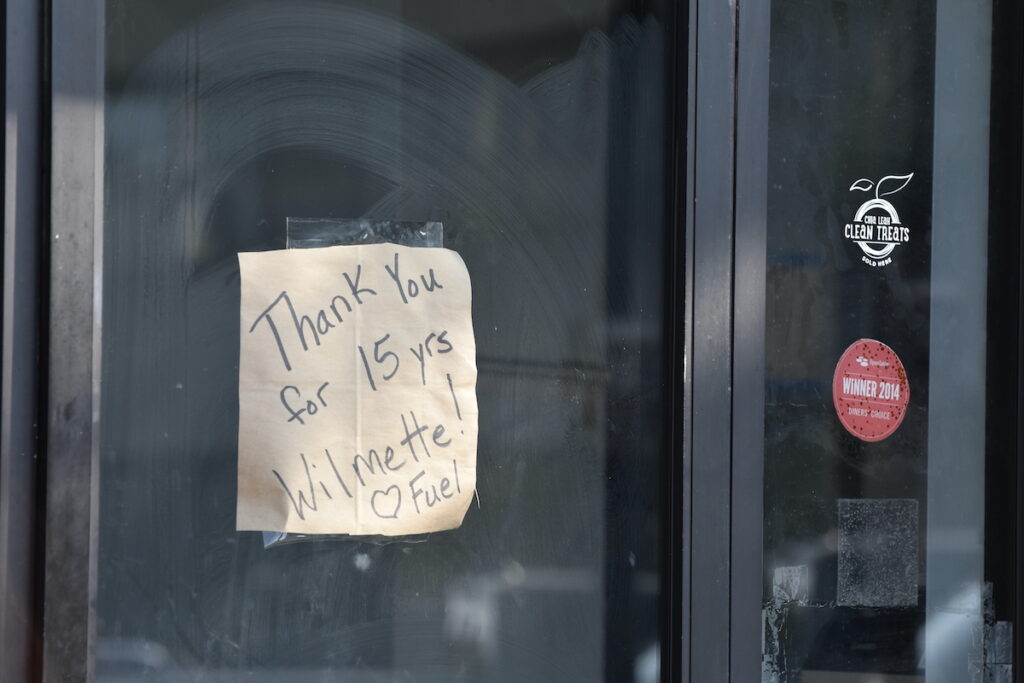 Thank You
for 15 yrs
Wilmette!
♡ Fuel
CHIA LEAH
CLEAN TREATS
SOLD HERE
WINNER 2014
DINERS' CHOICE